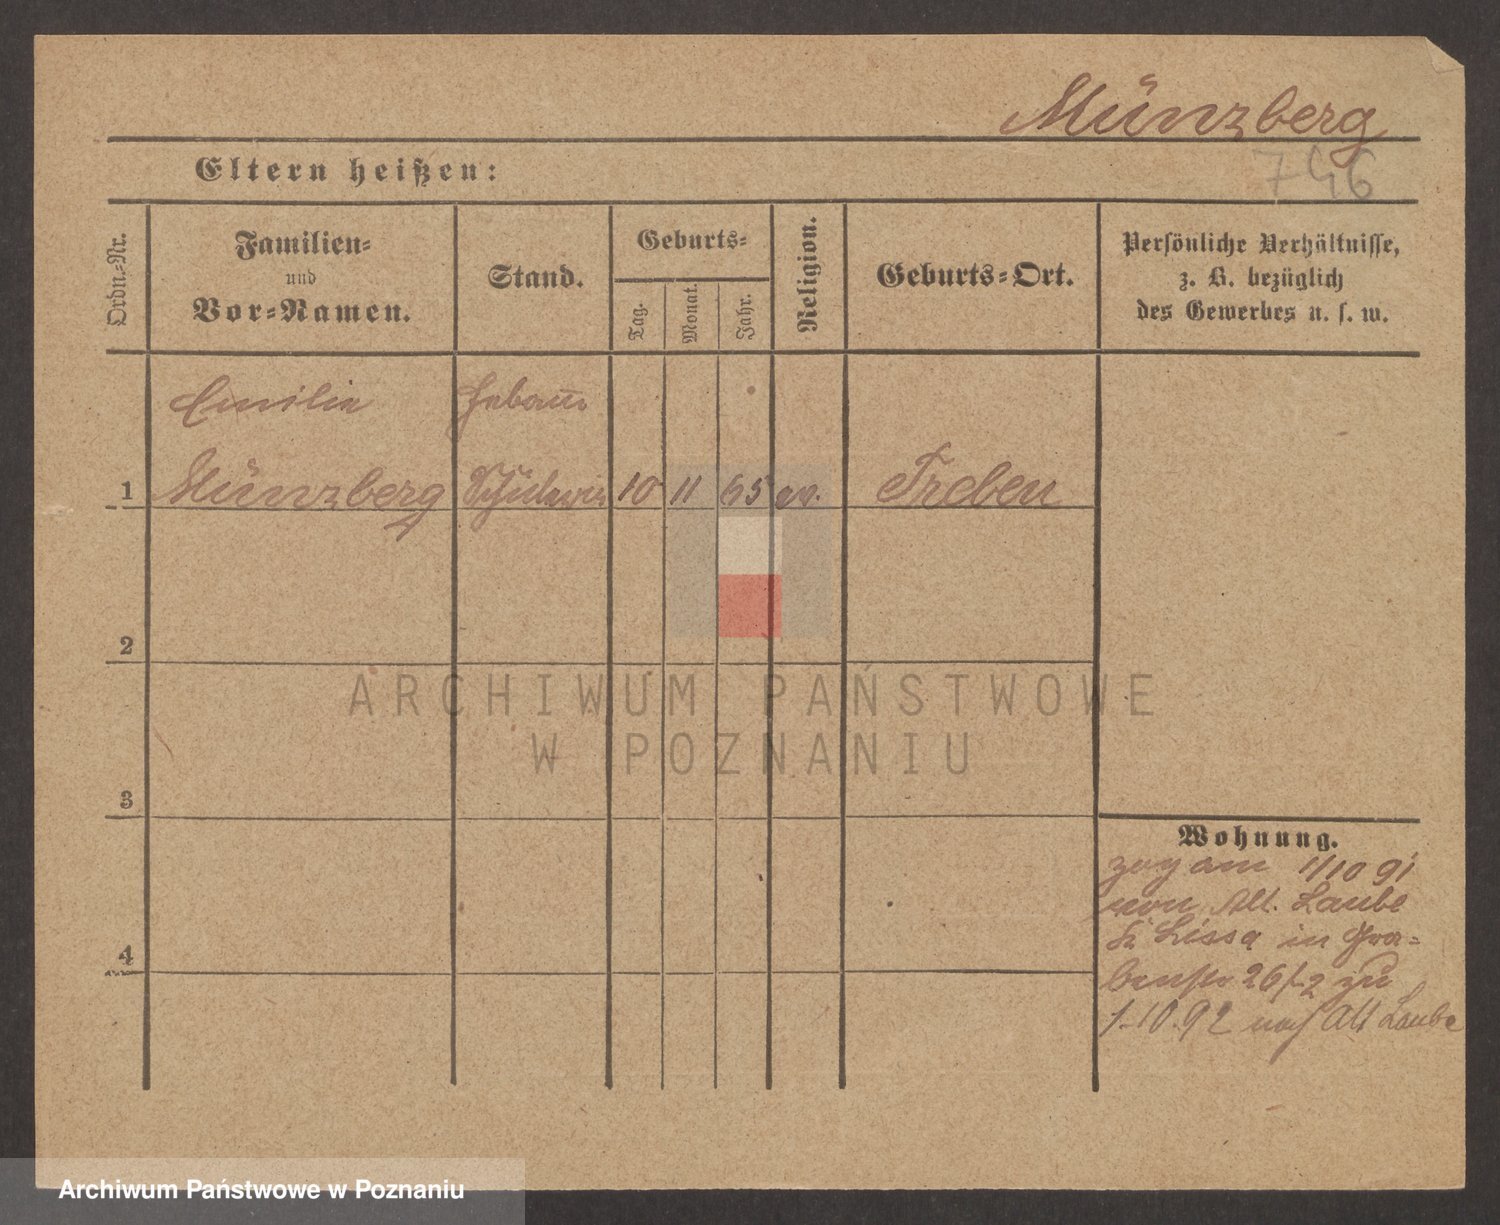 Münzberg
Eltern heißen:
746
Ordn.-Nr.
Familien-
und
Vor-Namen.
Stand.
Geburts-
Tag.
Monat.
Jahr.
Religion.
Geburts-Ort.
Persönliche Verhältnisse,
z. B. bezüglich
des Gewerbes u. s. w.
Emilie
1 Münzberg 10 11 65 ev. Treben
2
3
4
Wohnung.
zog am 1/10 91
von Alt. Laube
Kr Lissa in Gra-
benstr 26/2 zu
1.10.92 nach Alt Laube
ARCHIWUM PAŃSTWOWE
W POZNANIU
Archiwum Państwowe w Poznaniu